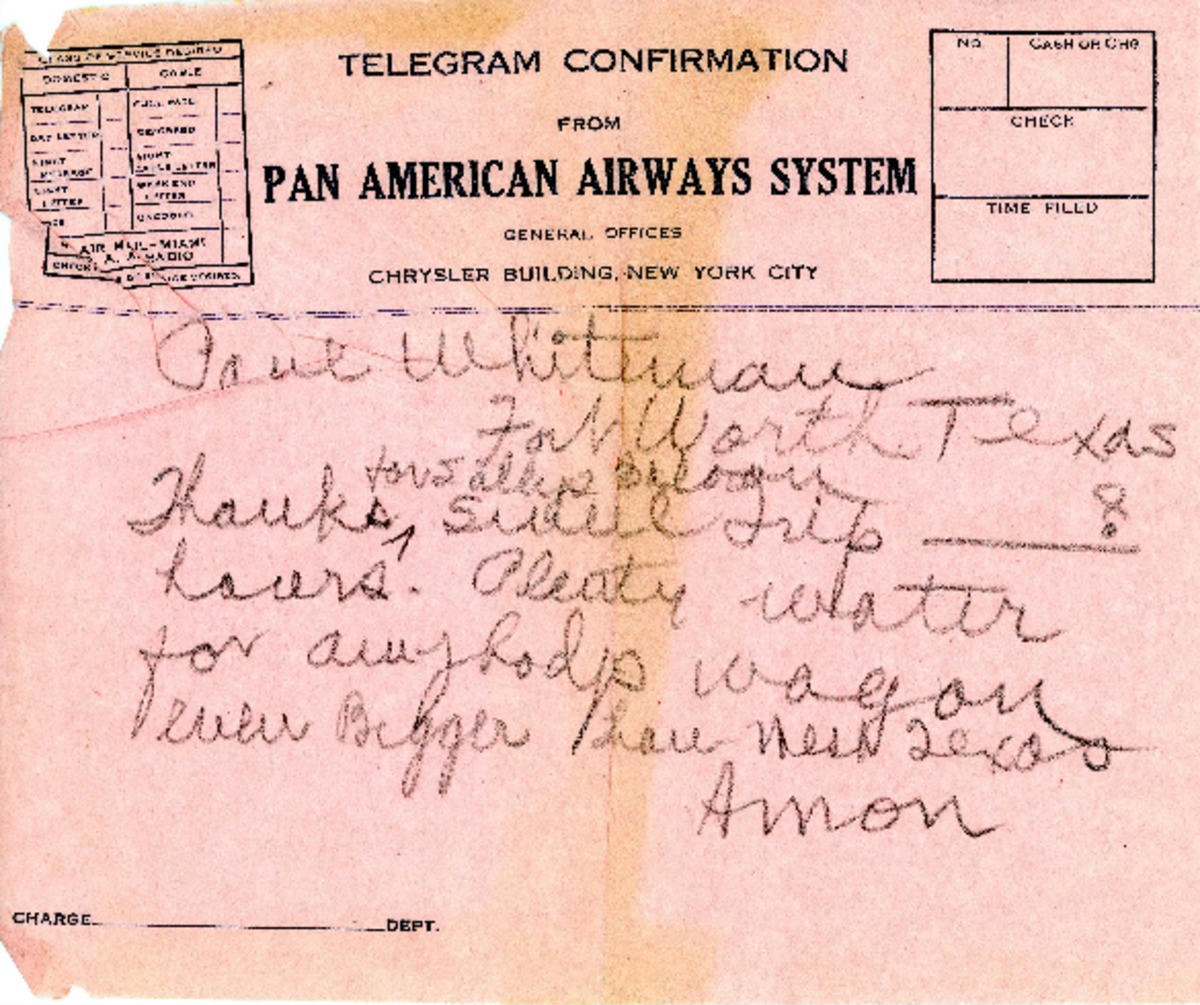 CLASS OF SERVICE DESIRED
DOMESTIC CABLE
TELEGRAM FULL RATE
DAY LETTER DEFERRED
NIGHT MESSAGE NIGHT LETTER
NIGHT LETTER WEEK END LETTER
AIR MAIL-MIAMI
RADIO
CHECK DESIRED
TELEGRAM CONFIRMATION
FROM
PAN AMERICAN AIRWAYS SYSTEM
GENERAL OFFICES
CHRYSLER BUILDING, NEW YORK CITY
NO. CASH OR CHG
CHECK
TIME FILED
Paul Whitman
Fort Worth Texas
for
Thanks, Trip 8
hours. Plenty water
for anybodys wagon
even Bigger than West Texas
Amon
CHARGE DEPT.